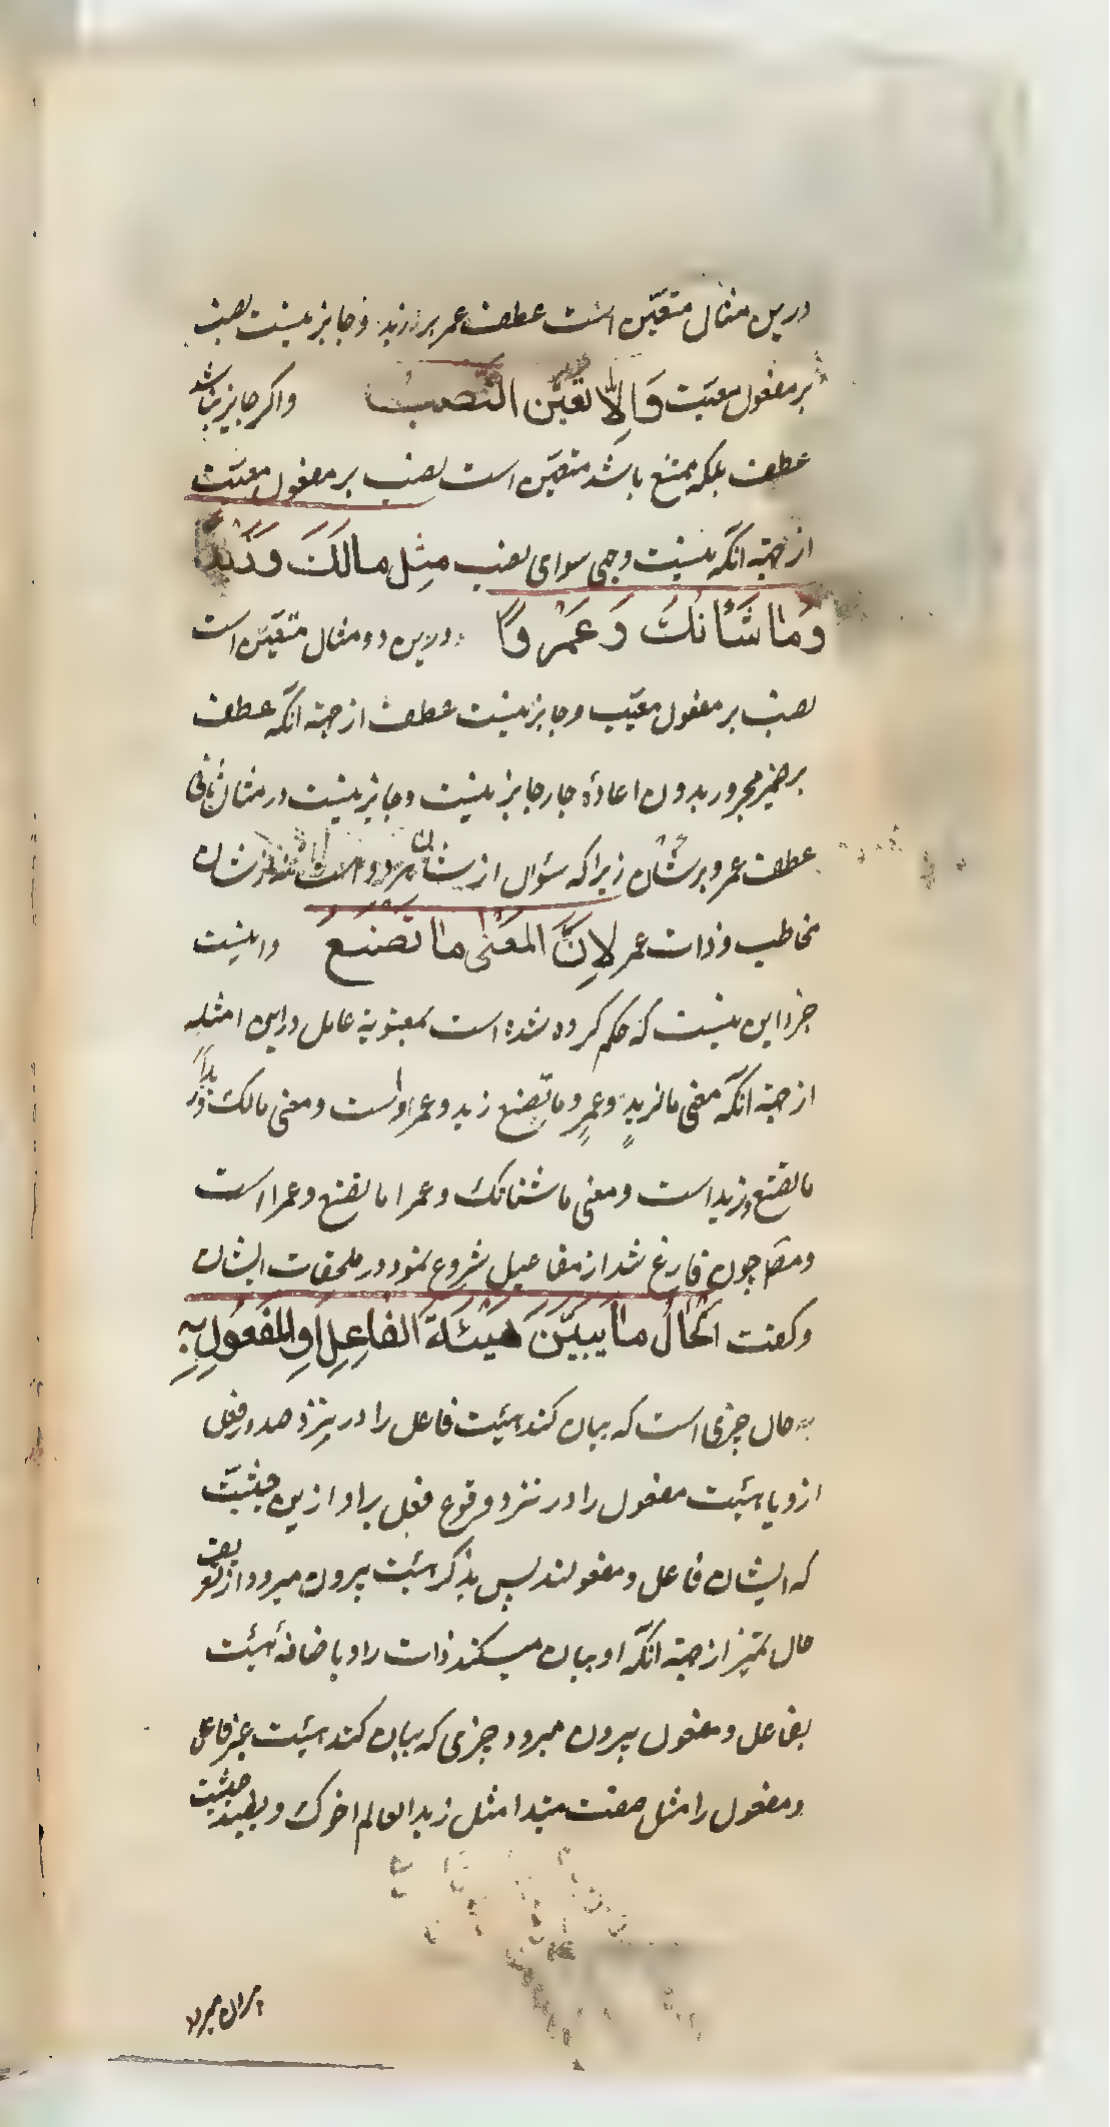 درین مثال متعیّن است عطف عمر بر زید و جایز نیست نصب
بر مفعول معیّت وَاِلَّا تَعَیَّنَ النَّصبُ واکر جایز نباشد
عطف بلکه ممتنع باشد متعیّن است نصب بر مفعول معیّت
از جهته انکه نیست وجهی سوای نصب مِثل مالَكَ وَزَیداً
وَما شَأنُكَ وَعَمرواً درین دو مثال متعیّن است
نصب بر مفعول معیّت و جایز نیست عطف از جهته انکه عطف
بر ضمیر مجرور بدون اعادهٔ جار جایز نیست و جایز نیست در مثال ثانی
عطف عمرو بر شان زیرا که سؤال از شان هر دو است نه از شان
مخاطب و ذات عمر لِاَنَّ المَعنی ما تَصنَعُ واینست
جز این نیست که حکم کرده شده است بمعنویة عامل در این امثله
از جهته انکه معنی ما لزیدٍ وعمرٍو ما تصنع زید وعمرو است ومعنی مالك وزیداً
ما تصنع وزیدا است ومعنی ما شانك وعمرا ما تصنع وعمرا است
ومصّ چون فارغ شد از مفاعیل شروع نمود در ملحقات ایشان
وکفت اَلحالُ ما یُبَیِّنُ هَیئَةَ الفاعِلِ اَوِ المَفعُولِ بِهِ
حال چیزی است که بیان کند هیئت فاعل را در نزد صدور فعل
ازو یا هیئت مفعول را در نزد وقوع فعل براو ازین حیثیّت
که ایشان فاعل و مفعولند پس بذکر هیئت بیرون میرود از تعریف
حال تمیز از جهته انکه او بیان میکند ذات را و باضافهٔ هیئت
بفاعل و مفعول بیرون میرود چیزی که بیان کند هیئت غیر فاعل
ومفعول را مثل صفت مبتدا مثل زید العالم اخوك وبقید حیثیت
بیرون میرود